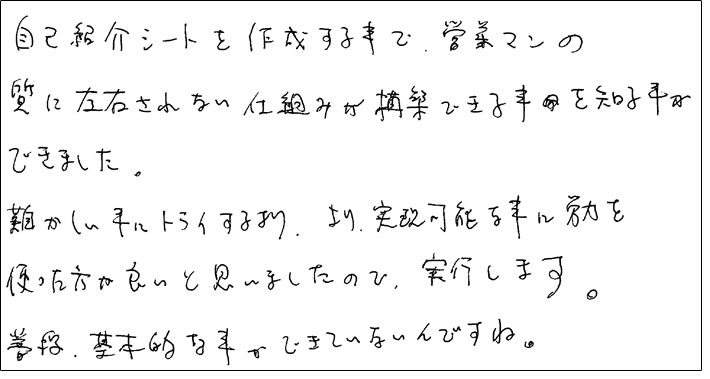 自己紹介シートを作成する事で、営業マンの
質に左右されない仕組みが構築できる事を知る事が
できました。
難かしい事にトライするより、より、実現可能な事に労力を
使った方が良いと思いましたので、実行します。
普段、基本的な事ができていないんですね。